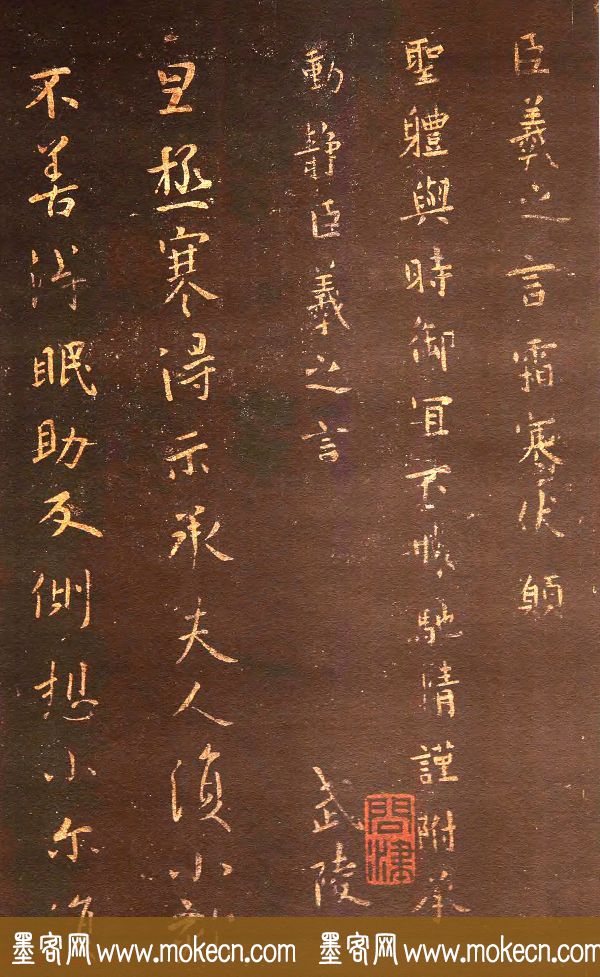 臣羲之言霜寒伏願
聖體與時御宜不勝馳情謹附承
動靜臣羲之言 武陵
旦極寒得示承夫人復小
不善得眠助反側想小尔復
墨客网 www.mokecn.com 墨客网 www.mokecn.com